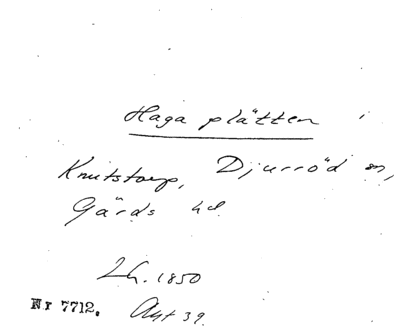 Haga plätten i
Knutstorp, Djurröd sn,
Gärds hd.
Lh. 1850
Nr 7712. Akt 39.